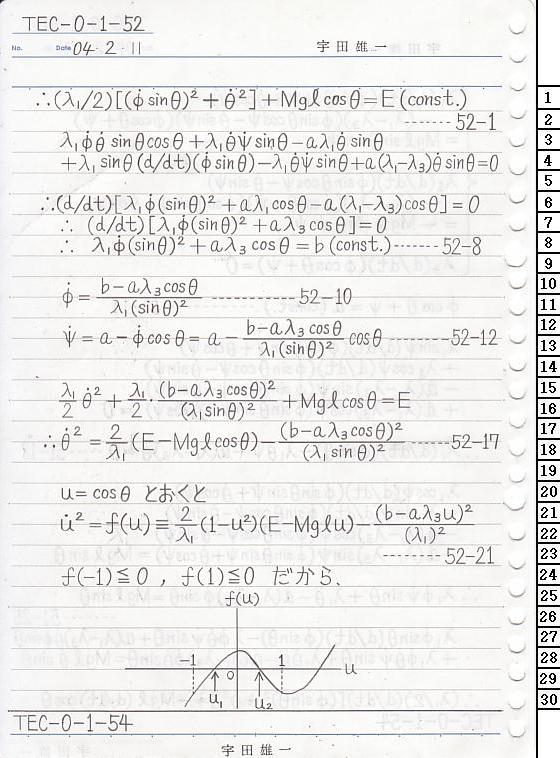 TEC-0-1-52
No. Date 04・2・11 宇田雄一
∴(λ₁/2)[(φ̇ sinθ)²+θ̇²]+Mgℓcosθ=E (const.)
-------52-1
λ₁φ̇θ̇ sinθcosθ+λ₁θ̇ψ̇sinθ-aλ₁θ̇ sinθ
+λ₁ sinθ(d/dt)(φ̇sinθ)-λ₁θ̇ψ̇sinθ+a(λ₁-λ₃)θ̇ sinθ=0
∴(d/dt)[λ₁φ̇(sinθ)²+aλ₁cosθ-a(λ₁-λ₃)cosθ]=0
∴ (d/dt)[λ₁φ̇(sinθ)²+aλ₃cosθ]=0
∴ λ₁φ̇(sinθ)²+aλ₃ cosθ=b(const.)-------52-8
φ̇=(b-aλ₃cosθ)/(λ₁(sinθ)²) -----------52-10
ψ̇=a-φ̇cosθ=a-(b-aλ₃cosθ)/(λ₁(sinθ)²) cosθ --------52-12
λ₁/2 θ̇²+λ₁/2・(b-aλ₃cosθ)²/(λ₁sinθ)²+Mgℓcosθ=E
∴θ̇²=2/λ₁(E-Mgℓcosθ)-(b-aλ₃cosθ)²/(λ₁sinθ)² ------52-17
u=cosθ とおくと
u̇²=f(u)≡2/λ₁(1-u²)(E-Mgℓu)-(b-aλ₃u)²/(λ₁)²
--------52-21
f(-1)≦0 , f(1)≦0 だから、
f(u)
-1 0 1 u
u₁ u₂
TEC-0-1-54
宇田雄一
1
2
3
4
5
6
7
8
9
10
11
12
13
14
15
16
17
18
19
20
21
22
23
24
25
26
27
28
29
30